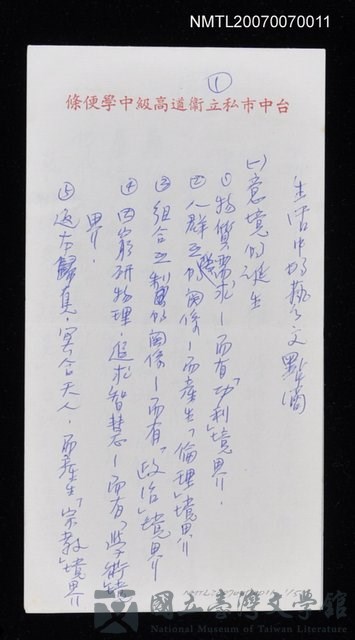 NMTL20070070011
①
條便學中級高道衛立私市中台
生活中的藝文點滴
(一)意境的誕生
①物質需求—而有「功利」境界.
②人群互助關係—而產生「倫理」境界
③組合互制的關係—而有「政治」境界
④因窮研物理，追求智慧—而有「學術」境
界.
⑤返本歸真，冥合天人，而產生「宗教」境界
國立臺灣文學館
National Museum of Taiwan Literature